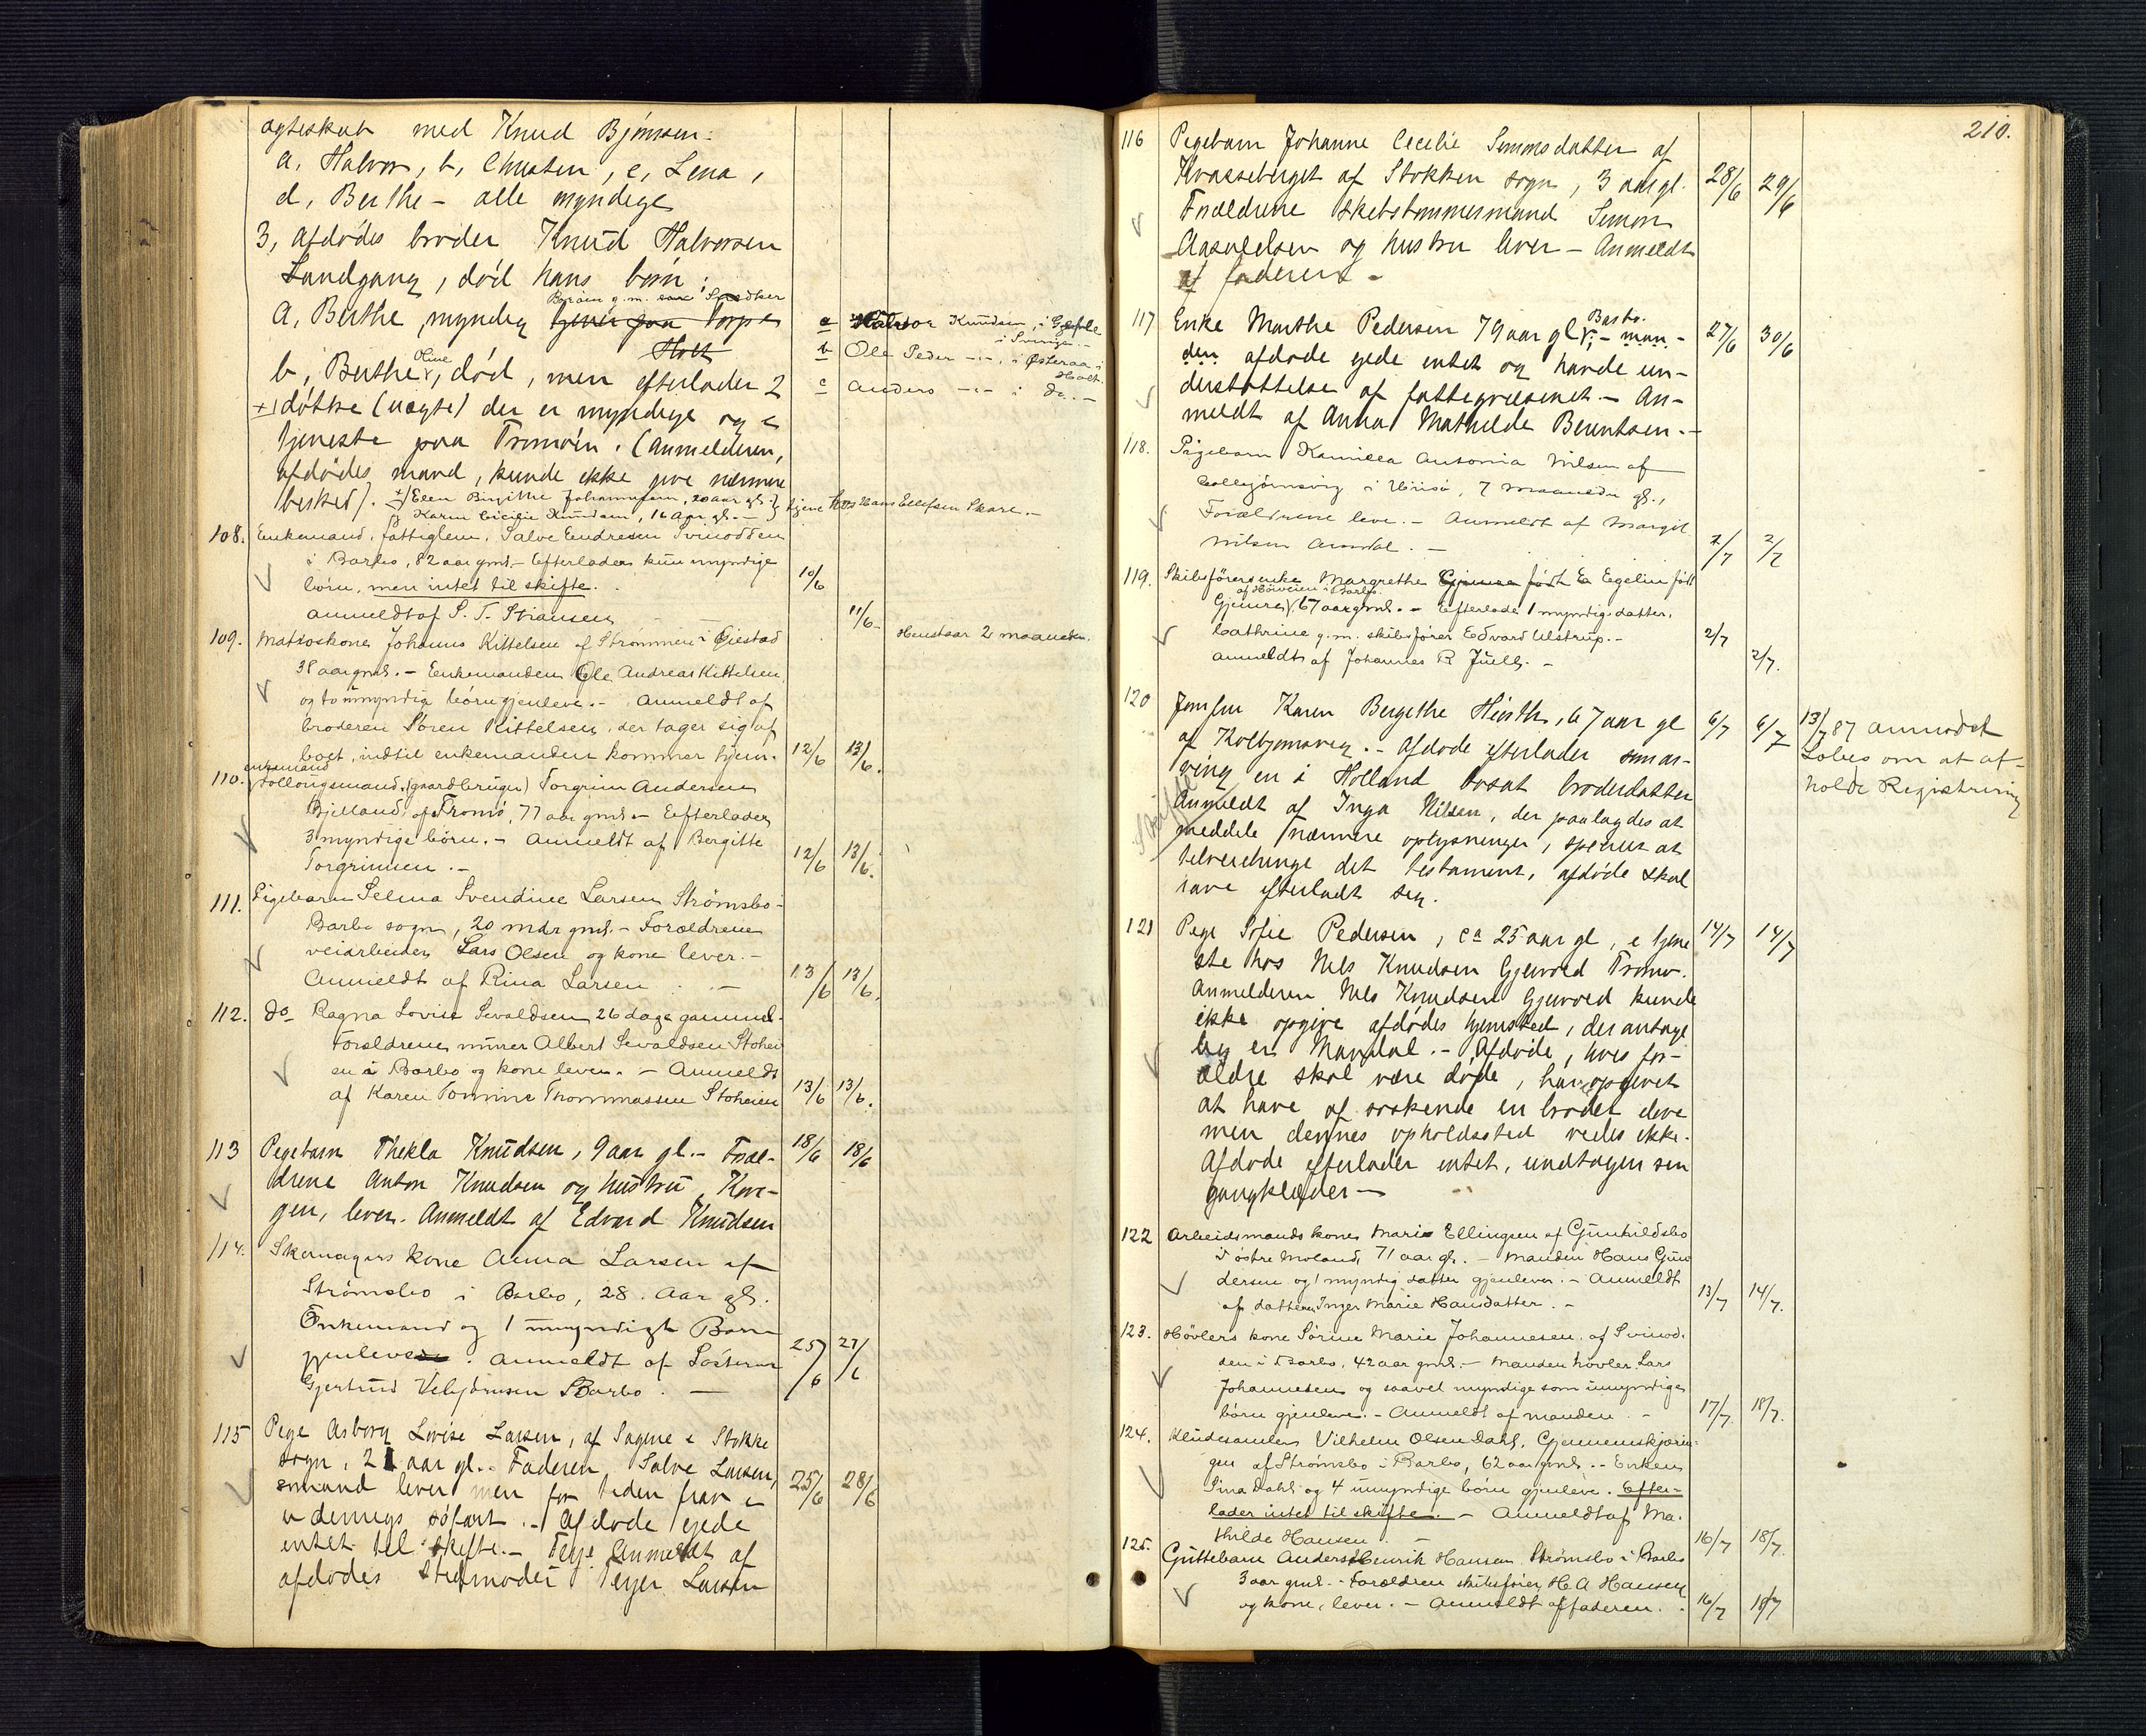 ægteskab med Knud Bjørnsen:
a, Halvor, b, Christen, c, Lena,
d, Berthe - alle myndige
3, Afdødes broder Knud Halvorsen
Landgang, død hans børn:
g. m.
a, Berthe, myndig tjener paa Torp
Holt
b, Berthe Oline, død, men efterlader 2
døttre (uægte) der er myndige og i
tjeneste paa Tromøen. (Anmelderen,
afdødes mand, kunde ikke give nærmere
besked).
Elen Birgithe Johannesen, 20 aar gl.
og Karen Cicilie Knudsen, 16 Aar gl. - tjener hos Hans Ellefsen Skare. -
a Halvor Knudsen, i Gefle
i Sverige. -
b Ole Peder -"- i Østeraa i
Holt.
c Anders -"- i do. -
108. Enkemand, fattiglem, Salve Endresen Svinodden
i Barbo, 82 aar gml. - Efterlader kun myndige
børn, men intet til skifte. 10/6
Anmeldt af S. T. Stiansen 11/6 -
109. Matroskone Johanne Kittelsen af Strømmen i Øiestad Henstaar 2 maaneder.
38 aar gml. - Enkemanden Ole Andreas Kittelsen
og to umyndige børn gjenleve. - Anmeldt af
broderen Søren Kittelsen, der tager sig af
boet, indtil enkemanden kommer hjem. 12/6 13/6.
enkemand
110. Follougsmand, (gaardbruger) Torgrim Andersen
Bjelland af Tromø, 77 aar gml. - Efterlader
3 myndige børn. - Anmeldt af Bergitte
Torgrimsen. - 12/6 13/6.
111. Pigebarn Selma Svendine Larsen Strømsbo -
Barbo sogn, 20 mdr gml. - Forældrene
veiarbeider Lars Olsen og kone lever. -
Anmeldt af Rina Larsen - 13/6 13/6.
112. do Ragna Lovise Sevaldsen 26 dage gammel.
Forældrene murer Albert Sevaldsen
i Barbo og kone lever. - Anmeldt
af Karen Tomine Thommassen 13/6 13/6.
113 Pigebarn Thekla Knudsen, 9 aar gl. - Foræl- 18/6 18/6
drene Anton Knudsen og hustru,
lever. Anmeldt af Edvard Knudsen
114. Skomagers kone Anna Larsen af
Strømsbo i Barbo, 28. Aar gl.
Enkemand og 1 umyndigt Barn
gjenlever. Anmeldt af Søsteren 25/6 27/6
Gjertrud Barbo. -
115 Pige Asborg Lovise Larsen, af Sagene i Stokken
sogn, 21 aar gl. - Faderen Salve Larsen,
sømand lever men for tiden fravær- 25/6 28/6
udenrigs søfart. - Afdøde eiede
intet til skifte. - Anmeldt af
afdødes stedmoder Larsen
210.
116 Pigebarn Johanne Cecilie Simonsdatter af
Kvasseberget af Stokken sogn, 3 aar gl. 28/6 29/6
Forældrene skibstømmermand Simon
Aasuldsen og hustru lever - Anmeldt
af faderen -
117 Enke Marthe Pedersen 79 aar gl. Barbo. - man- 27/6 30/6
den afdøde eiede intet og havde un-
derstøttelse af fattigvæsenet. - An-
meldt af Anna Mathilde Berentsen. -
118. Pigebarn Kamilla Antonia Nilsen af
Kolbjørnsvig i Hisø, 7 Maaneder gl.,
Forældrene leve. - Anmeldt af Margit
Nilsen Arendal. - 2/7 2/7
119. Skibsførerenke Margrethe Egelin født
Gjemre af Høiveien i Barbo, 67 aar gml. - Efterlader 1 myndig datter,
Cathrine g. m. skibsfører Edvard Ulstrup. - 2/7
Anmeldt af Johannes R Juell. - 2/7.
120 Jomfru Karen Bergethe Hirsth, 67 aar gl. 6/7 6/7 13/7 87 anmodet
af Kolbjørnsvig. - Afdøde efterlader som ar- Lobes om at af-
ving en i Holland bosat broderdatter holde Registrering
Anmeldt af Inga Nilsen, der paalagdes at
meddele nærmere oplysninger, specielt at
tilveiebringe det testament, afdøde skal
have efterladt sig.
121 Pige Sofie Pedersen, ca 25 aar gl, i tjene- 14/7 14/7
ste hos Nils Knudsen Gjervold Tromø.
Anmelderen Nils Knudsen Gjervold kunde
ikke opgive afdødes hjemsted, der antage-
lig er Mandal. - Afdøde, hvis for-
ældre skal være døde, har opgivet
at have af søskende en broder i live
men dennes opholdssted vides ikke.
Afdøde efterlader intet, undtagen sin
gangklæder -
122 Arbeidsmands kone Marie Ellingsen af Gunhildsbo
i østre Moland, 71 aar gl. - Manden Hans Gun-
dersen og 1 myndig datter gjenlever. - Anmeldt 13/7 14/7.
af datteren Inger Marie Hansdatter. -
123. Høvlers kone Sørine Marie Johannesen, af Svinod-
den i Barbo, 42 aar gml. - Manden høvler Lars
Johannesen og saavel myndige som umyndige
børn gjenleve. - Anmeldt af manden. - 17/7 18/7.
124. Kludesamler Vilhelm Olsen Dahl, Gjennemskjærin-
gen af Strømsbo i Barbo, 62 aar gml. - Enken
Sina Dahl og 4 umyndige børn gjenleve. Efter-
lader intet til skifte. - Anmeldt af Ma-
thilde Hansen. - 16/7 18/7.
125. Guttebarn Anders Henrik Hansen Strømsbo i Barbo
3 aar gml. - Forældrene skibsfører H. A Hansen
og kone, lever. - Anmeldt af faderen. 16/7 18/7